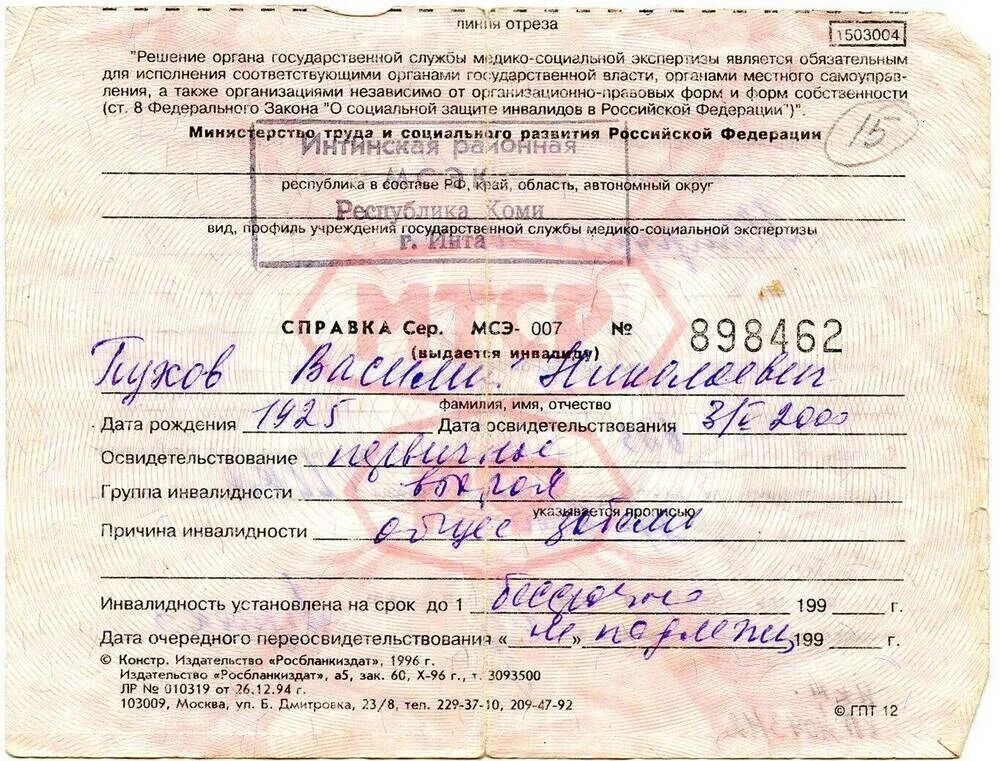 линия отреза
1503004
"Решение органа государственной службы медико-социальной экспертизы является обязательным
для исполнения соответствующими органами государственной власти, органами местного самоуправ-
ления, а также организациями независимо от организационно-правовых форм и форм собственности
(ст. 8 Федерального Закона "О социальной защите инвалидов в Российской Федерации")".
Министерство труда и социального развития Российской Федерации
15
Интинская районная
МСЭК
республика в составе РФ, край, область, автономный округ
Республика Коми
вид, профиль учреждения государственной службы медико-социальной экспертизы
г. Инта
МТСР
СПРАВКА Сер. МСЭ- 007 № 898462
(выдается инвалиду)
Пужов Василий Николаевич
фамилия, имя, отчество
Дата рождения 1925 Дата освидетельствования 3/ 2000
Освидетельствование первичное
Группа инвалидности вторая
указывается прописью
Причина инвалидности общее заболев
Инвалидность установлена на срок до 1 бессрочно 199 г.
Дата очередного переосвидетельствования « » подлежит 199 г.
© Констр. Издательство «Росбланкиздат», 1996 г.
Издательство «Росбланкиздат», а5, зак. 60, Х-96 г., т. 3093500
ЛР № 010319 от 26.12.94 г.
103009, Москва, ул. Б. Дмитровка, 23/8, тел. 229-37-10, 209-47-92
© ГПТ 12